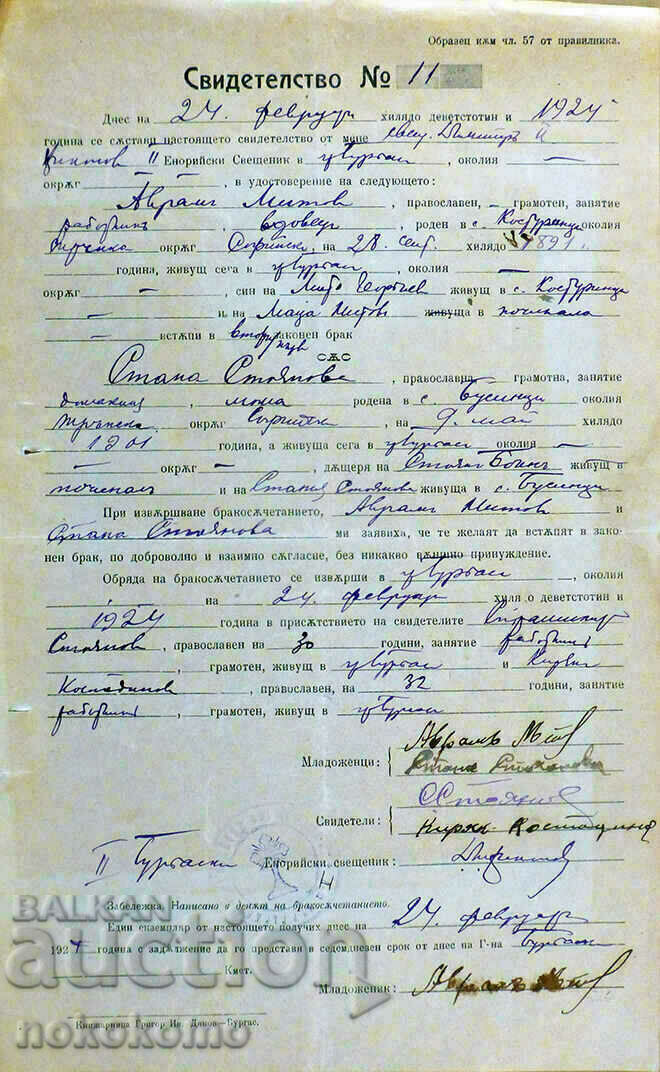 Образец кѫм чл. 57 от правилника.
Свидетелство № 11
Днес на 24. февруарий хилядо деветстотин и 1924
година се сѫстави настоящето свидетелство от мене свещ. Димитръ
II Енорийски Свещеник в гр Бургас, околия —
окрѫг —, в удостоверение на следующето:
Аврамъ Митов, православен, — грамотен, занятие
работникъ, вдовец роден в с. Костуринци околия
Трънска окрѫг Софийски, на 28 септ. хилядо 1891
година, живущ сега в гр Бургас, околия —
окрѫг —, син на Мито Георгиев живущ в с. Костуринци
— и на Маца Митова живуща в починала
— встѫпи в втори законен брак
сѫс
Стана Стоянова, православна, грамотна, занятие
домакиня, мома родена в с. Бусинци околия
Трънска окрѫг Софийски, на 9. май хилядо
1901 година, а живуща сега в гр Бургас околия —
— окрѫг —, дѫщеря на Стоян живущ в
починалъ и на Стания Стоянова живуща в с. Бусинци
При извѫршване бракосѫчетанието, Аврамъ Митов и
Стана Стоянова ми заявиха, че те желаят да встѫпят в зако-
нен брак, по доброволно и взаимно сѫгласие, без никакво вѫншно принуждение.
Обряда на бракосѫчетанието се извѫрши в гр Бургас, околия
на 24. февруарий хилядо деветстотин и
1924 година в присѫтствието на свидетелите
Стоянов, православен на 30 години, занятие работникъ
, грамотен, живущ в гр Бургас и Кирякъ
Костадинов, православен, на 32 години, занятие
работникъ, грамотен, живущ в гр Бургас
Младоженци: Аврамъ Митов
Стана Стоянова
Свидетели: С Стоянов
Костадинов
II Бургаски Енорийски свещеник:
Забележка. Написано в денят на бракосѫчетанието.
Един екземпляр от настоящето получих днес на 24. февруарий
1924 година с задѫлжение да го представя в седемдневен срок от днес на Г-на Бургаски
Кмет.
Младоженик: Аврамъ Митов
Книжарница Григор Ив. Дяков—Бургас.
БАЛКАН
auction
nokokomo